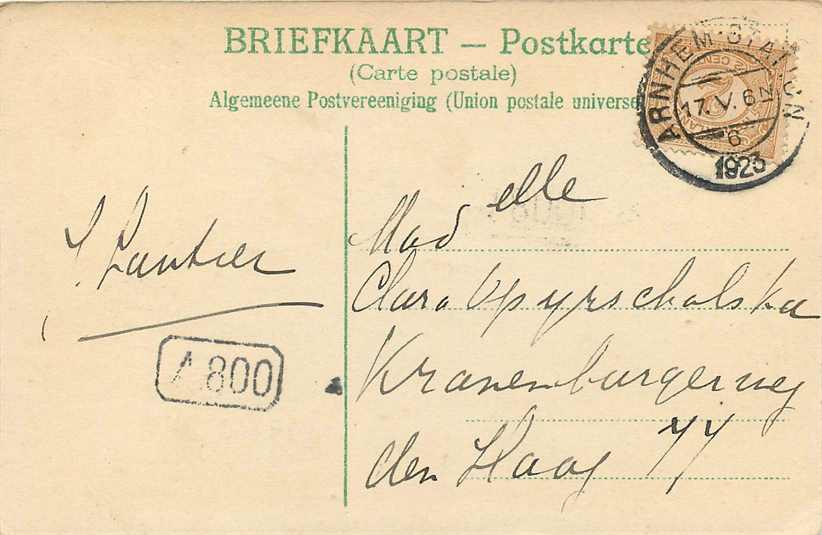 BRIEFKAART — Postkarte
(Carte postale)
Algemeene Postvereeniging (Union postale universe
ARNHEM-STATION
17.V.6N
6
1923
Madelle
Clara
Kranenburgerweg
den Haag 77
A.800